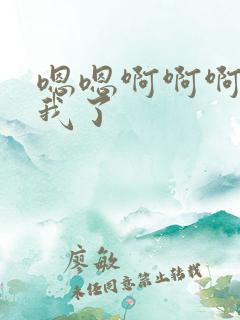 嗯嗯啊啊啊
我了
廖敏
未经同意禁止转载